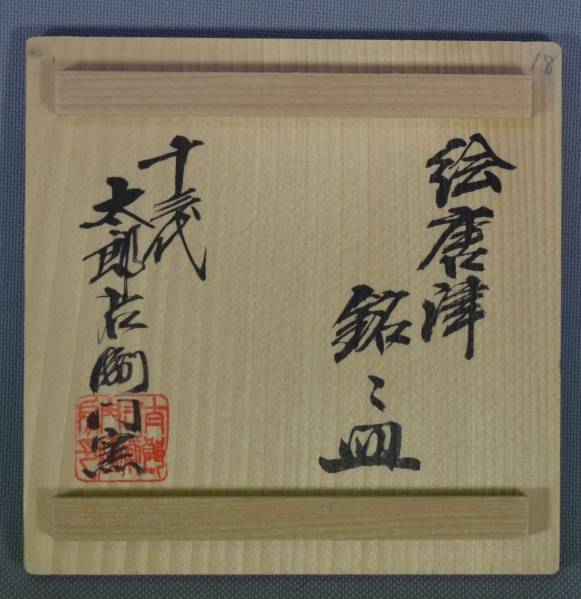 絵唐津
銘〻皿
十三代
太郎右衛門窯
18